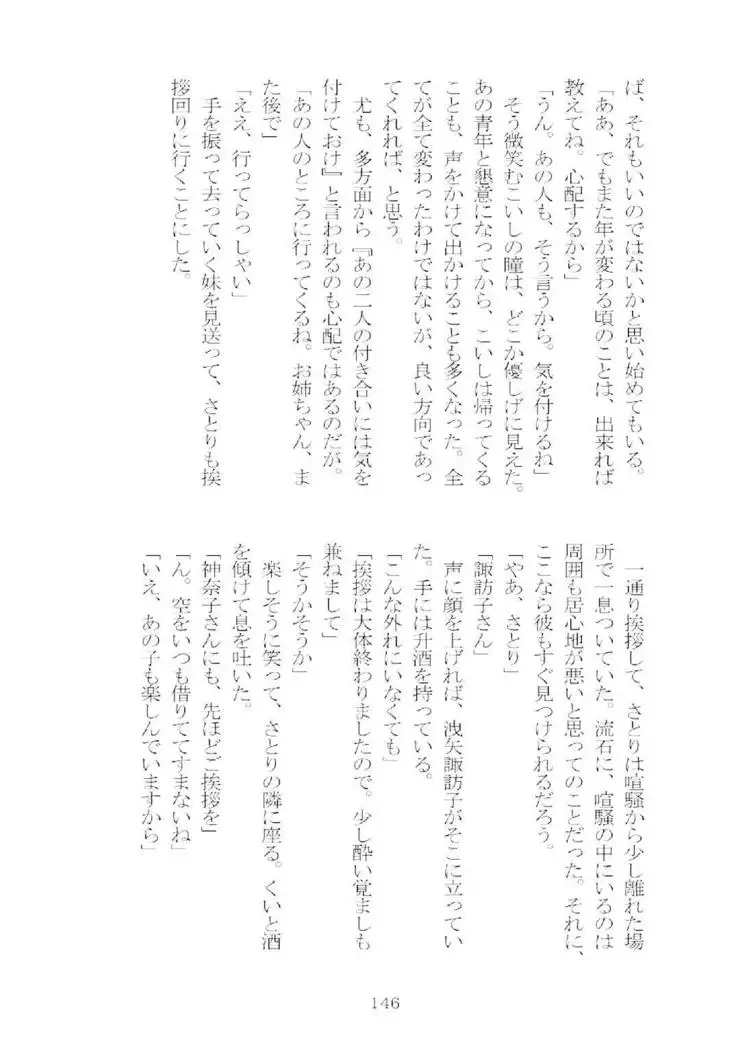 ば、それもいいのではないかと思い始めてもいる。
「ああ、でもまた年が変わる頃のことは、出来れば
教えてね。心配するから」
「うん。あの人も、そう言うから。気を付けるね」
　そう微笑むこいしの瞳は、どこか優しげに見えた。
あの青年と懇意になってから、こいしは帰ってくる
ことも、声をかけて出かけることも多くなった。全
てが全て変わったわけではないが、良い方向であっ
てくれれば、と思う。
　尤も、多方面から『あの二人の付き合いには気を
付けておけ』と言われるのも心配ではあるのだが。
「あの人のところに行ってくるね。お姉ちゃん、ま
た後で」
「ええ、行ってらっしゃい」
　手を振って去っていく妹を見送って、さとりも挨
拶回りに行くことにした。
　一通り挨拶して、さとりは喧騒から少し離れた場
所で一息ついていた。流石に、喧騒の中にいるのは
周囲も居心地が悪いと思ってのことだった。それに、
ここなら彼もすぐ見つけられるだろう。
「やあ、さとり」
「諏訪子さん」
　声に顔を上げれば、洩矢諏訪子がそこに立ってい
た。手には升酒を持っている。
「こんな外れにいなくても」
「挨拶は大体終わりましたので。少し酔い覚ましも
兼ねまして」
「そうかそうか」
　楽しそうに笑って、さとりの隣に座る。くいと酒
を傾けて息を吐いた。
「神奈子さんにも、先ほどご挨拶を」
「ん。空をいつも借りててすまないね」
「いえ、あの子も楽しんでいますから」
146